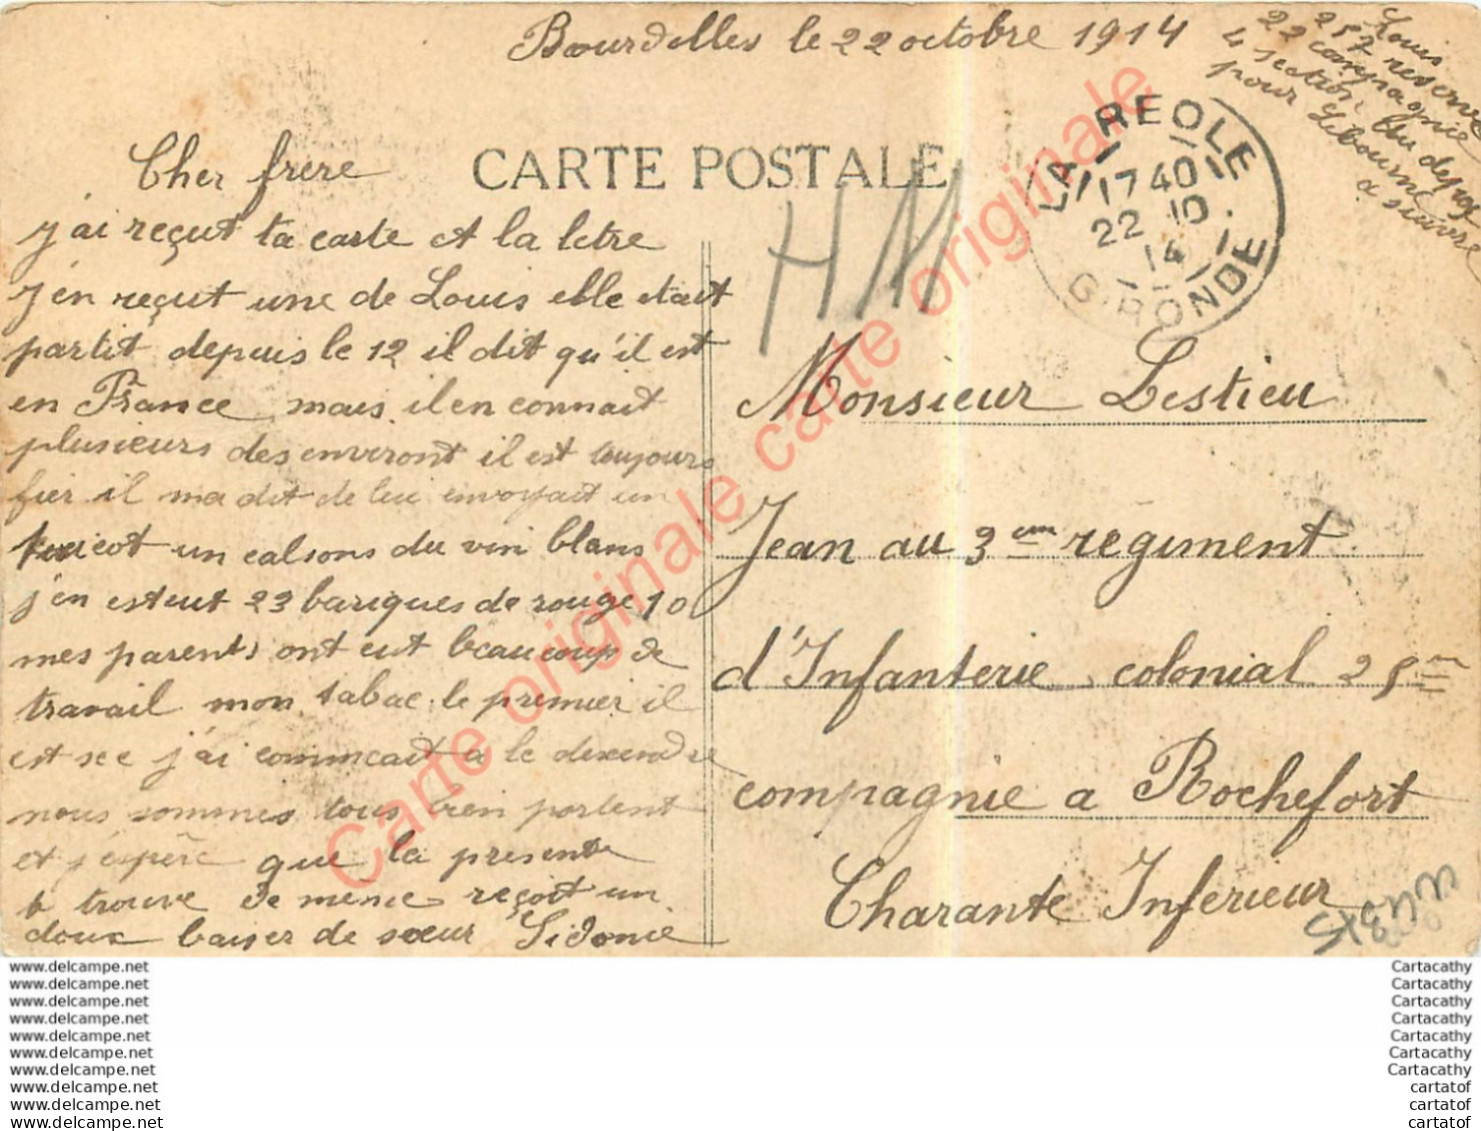 Bourdelles le 22 octobre 1914
Louis
257 reserve
22 compagnie
4 section
pour Libourne
a suivre
CARTE POSTALE
LA REOLE
17 40
22 10
14
GIRONDE
Cher frere
j'ai reçut ta carte et la letre
j'en reçut une de Louis elle etait
partit depuis le 12 il dit qu'il est
en France mais il en connait
plusieurs des environt il est toujours
fier il ma dit de lui envoyait un
tricot un calsons du vin blans
j'en est eut 23 bariques de rouge 10
mes parents ont eut beaucoup de
travail mon tabac le premier il
est sec j'ai commcait a le dexendre
nous sommes tous bien portent
et j'espère que la presente
te trouve de meme reçoit un
doux baiser de sœur Sidonie
Monsieur Lestieu
Jean au 3eme regiment
d'Infanterie colonial 25me
compagnie a Rochefort
Charante Inferieur
Carte originale carte originale
www.delcampe.net
www.delcampe.net
www.delcampe.net
www.delcampe.net
www.delcampe.net
www.delcampe.net
www.delcampe.net
www.delcampe.net
www.delcampe.net
www.delcampe.net
Cartacathy
Cartacathy
Cartacathy
Cartacathy
Cartacathy
Cartacathy
Cartacathy
cartatof
cartatof
cartatof